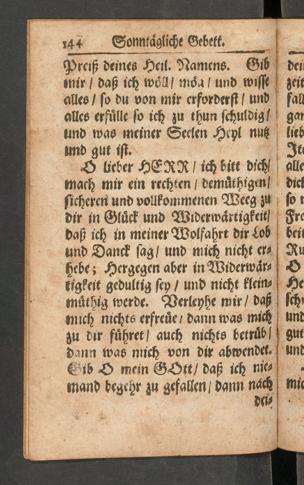 144 Sonntägliche Gebett.
Preiß deines Heil. Namens. Gib
mir / daß ich wöll / mög / und wisse
alles / so du von mir erforderst / und
alles erfülle so ich zu thun schuldig /
und was meiner Seelen Heyl nutz
und gut ist.
O lieber HERR / ich bitt dich /
mach mir ein rechten / demüthigen /
sicheren und vollkommenen Weeg zu
dir in Glück und Widerwärtigkeit /
daß ich in meiner Wolfahrt dir Lob
und Danck sag / und mich nicht er-
hebe ; Hergegen aber in Widerwär-
tigkeit gedultig sey / und nicht klein-
müthig werde. Verleyhe mir / daß
mich nichts erfreüe / dann was mich
zu dir führet / auch nichts betrüb /
dann was mich von dir abwendet.
Gib O mein GOtt / daß ich nie-
mand begehr zu gefallen / dann nach
dei-